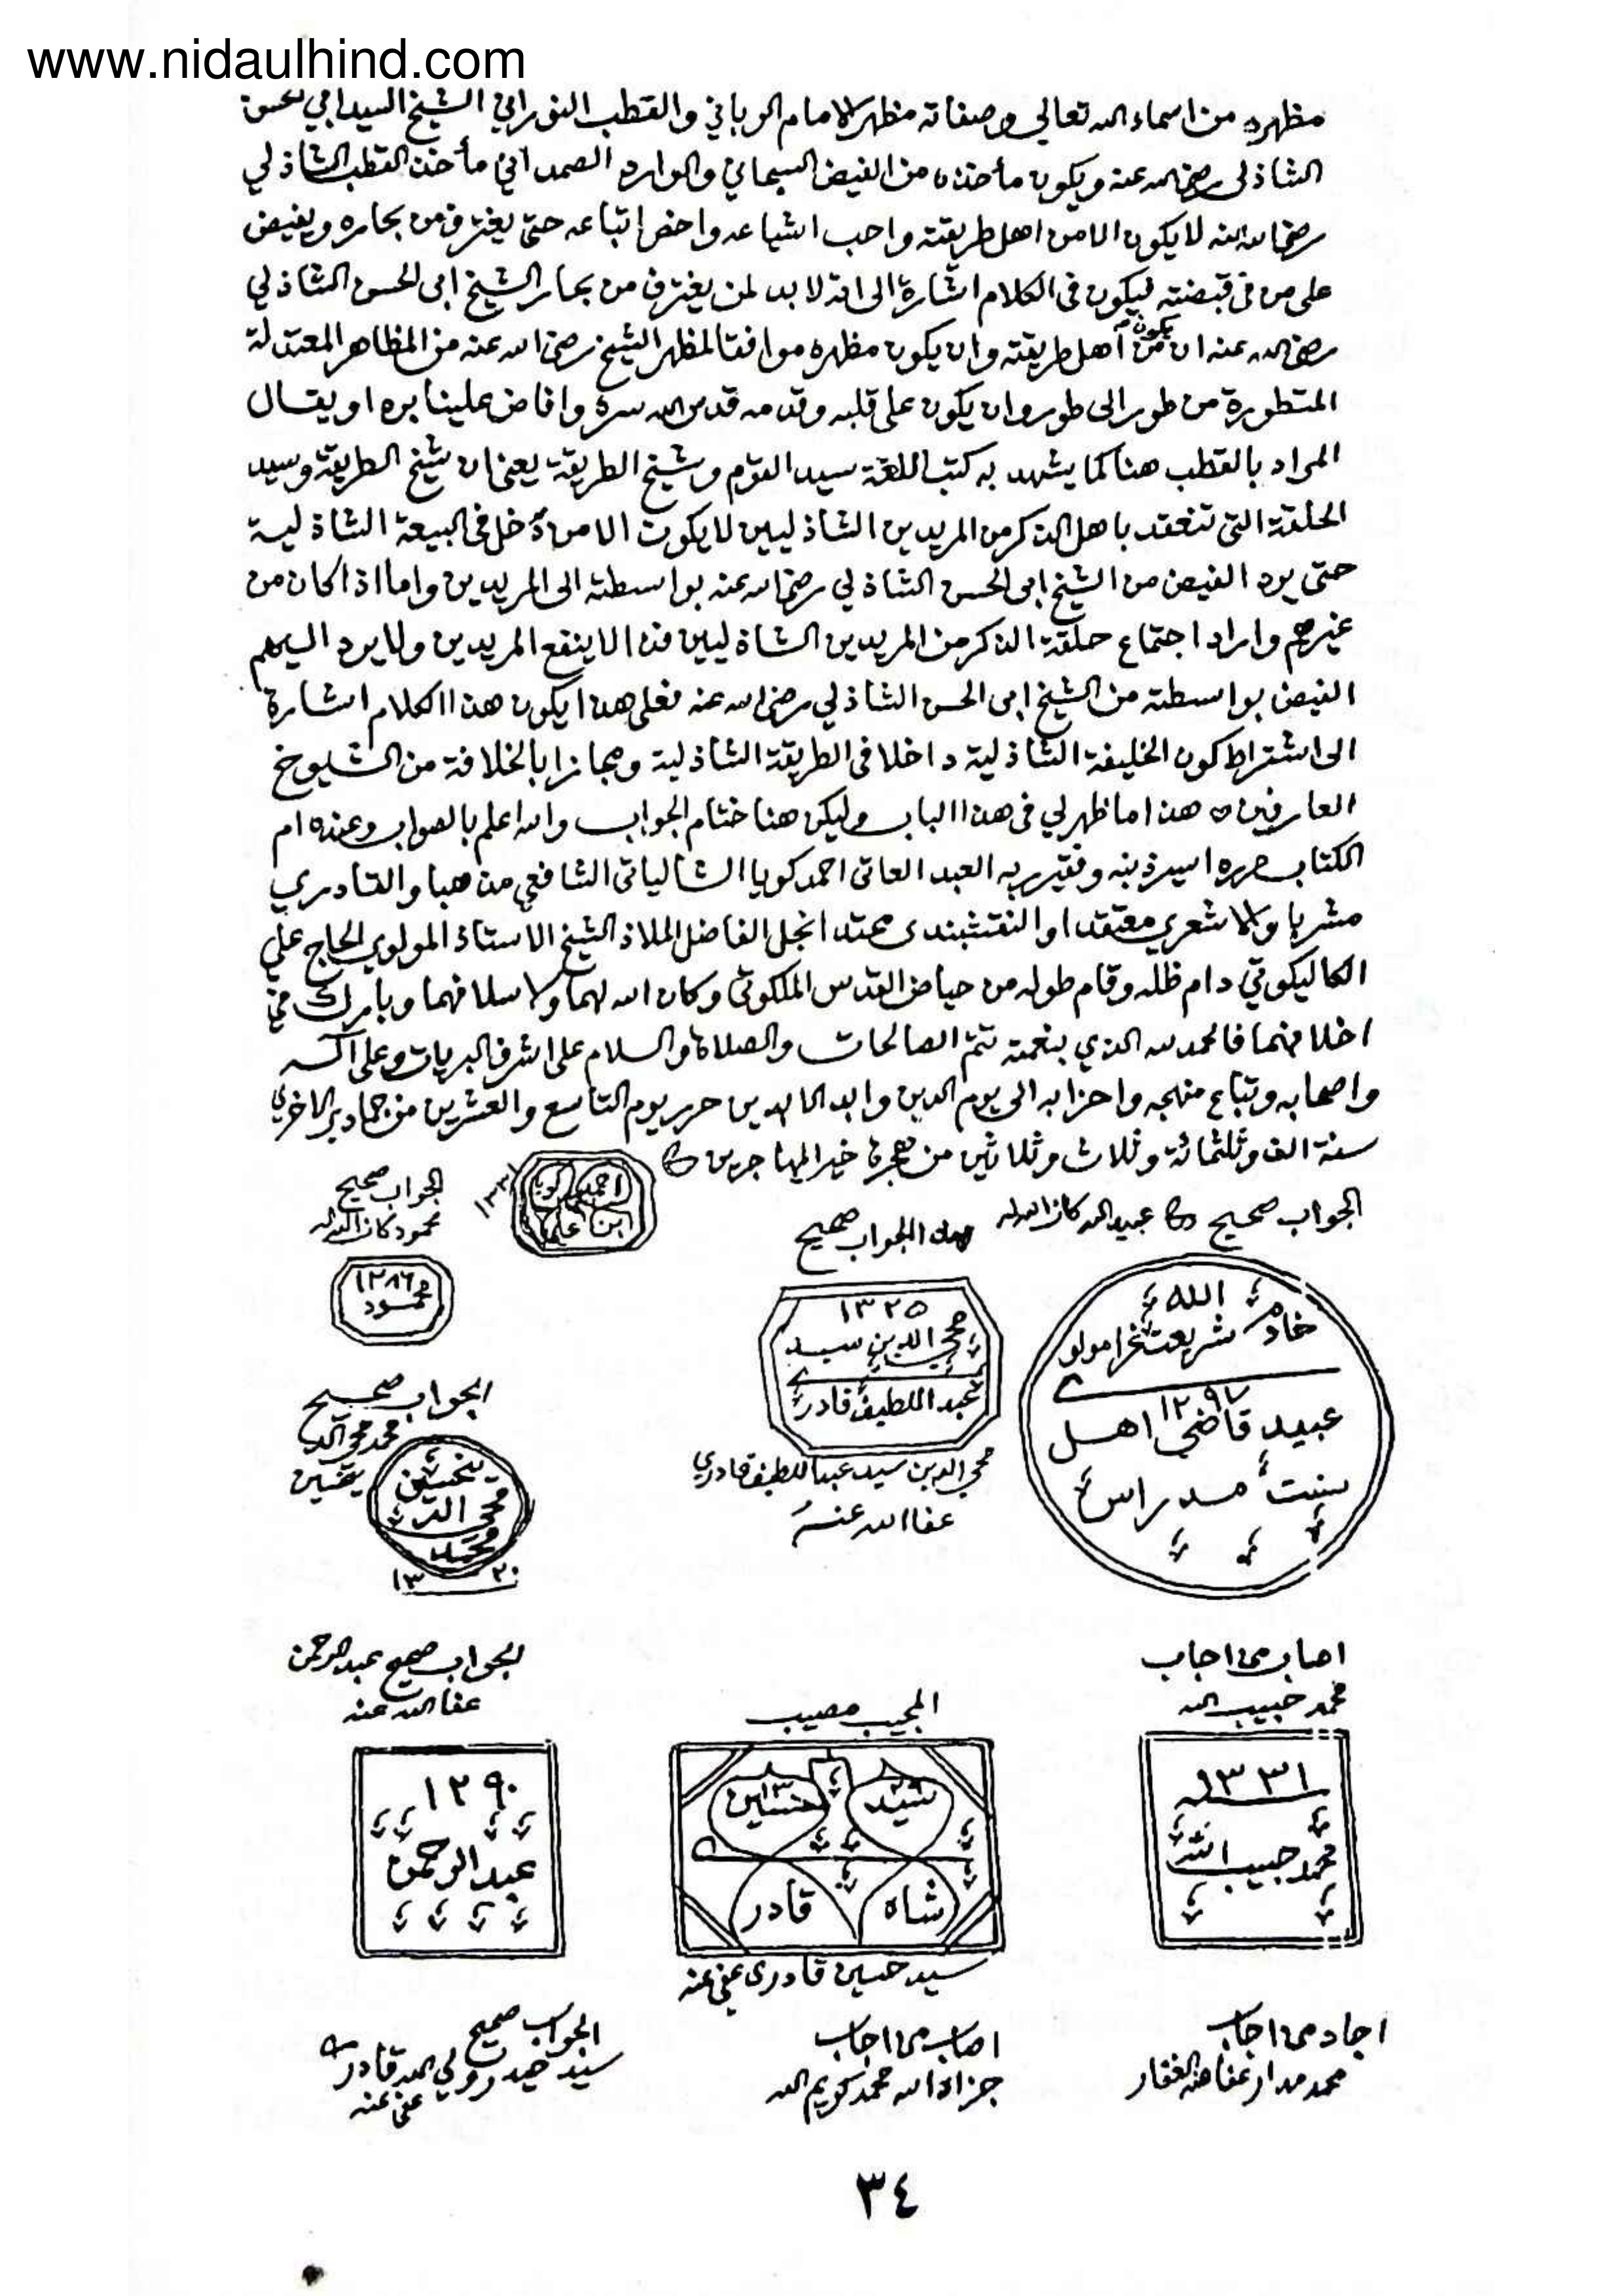 www.nidaulhind.com
مظهره من اسماء الله تعالى وصفاته مظهر الامام الرباني والقطب النوراني الشيخ السيد ابي الحسن
الشاذلى رضي الله عنه ويكون مأخذه من الفيض السبحاني والوارد الصمداني مأخذ القطب الشاذلي
رضي الله عنه لا يكون الا من اهل طريقته واحب اشياعه واخص اتباعه حتى يغترف من بحاره ويفيض
على من فى قبضته فيكون فى الكلام اشارة الى انه لا بد لمن يغترف من بحار الشيخ ابى الحسن الشاذلي
رضي الله عنه ان يكون من أهل طريقته وان يكون مظهره موافقا لمظهر الشيخ رضي الله عنه من المظاهر المعتدلة
المتطورة من طور الى طور وان يكون على قلبه وقدمه قدس الله سره وافاض علينا بره او يقال
المراد بالقطب هنا كما يشهد به كتب اللغة سيد القوم وشيخ الطريقة يعني ان شيخ الطريقة وسيد
الحلقة التى تنعقد باهل الذكر من المريدين الشاذليين لا يكون الا من دخل فى البيعة الشاذلية
حتى يرد الفيض من الشيخ ابى الحسن الشاذلي رضي الله عنه بواسطته الى المريدين واما اذا كان من
غيرهم واراد اجتماع حلقة الذكر من المريدين الشاذليين فذا لا ينفع المريدين ولا يرد اليهم
الفيض بواسطته من الشيخ ابى الحسن الشاذلي رضي الله عنه فعلى هذا يكون هذا الكلام اشارة
الى اشتراط كون الخليفة الشاذلية داخلا فى الطريقة الشاذلية ومجازا بالخلافة من الشيوخ
العارفين ه هذا ما ظهر لي فى هذا الباب وليكن هنا ختام الجواب والله اعلم بالصواب وعنده ام
الكتاب حرره اسير ذنبه وفقير ربه العبد العاتى احمد كويا الشالياتى الشافعي مذهبا والقادري
مشربا والاشعري معتقدا والنقشبندى محتدا نجل الفاضل الملاذ الشيخ الاستاذ المولوي الحاج علي
الكاليكوتي دام ظله وقام طوله من حياض القدس الملكوتى وكان الله لهما ولاسلافهما وبارك في
اخلافهما فالحمد لله الذي بنعمته تتم الصالحات والصلاة والسلام على اشرف البريات وعلى اله
واصحابه وتباع منهجه واحزابه الى يوم الدين وابد الابدين حرر يوم التاسع والعشرين من جمادى الاخرى
سنة الف وثلثمائة وثلاث وثلاثين من هجرة خير المهاجرين
الجواب صحيح عبيد الله كان الله له
هذا الجواب صحيح
احمد كويا
ابن علي
١٣٣١
الجواب صحيح
محمود كان الله له
١٢٨٦
محمود
الله
خادم شريعت غرا مولوي
١٢٩٧
عبيد قاضي اهل
سنت مدراس
١٣٢٥
محي الدين سيد
عبد اللطيف قادري
محي الدين سيد عبد اللطيف قادري
عفا الله عنه
الجواب صحيح
محمد محي الدين
محي الدين
محمد
١٣٢٠
اصاب من اجاب
محمد حبيب الله
١٣٣١
محمد حبيب الله
المجيب مصيب
سيد حسين
شاه قادر
سيد حسين قادرى عفي عنه
الجواب صحيح عبد الرحمن
عفا الله عنه
١٢٩٠
عبد الرحمن
اجاد من اجاب
محمد مدار عفا عنه الغفار
اصاب من اجاب
جزاه الله محمد كريم الله
الجواب صحيح
سيد حيدر ولي الله قادري
عفي عنه
٣٤